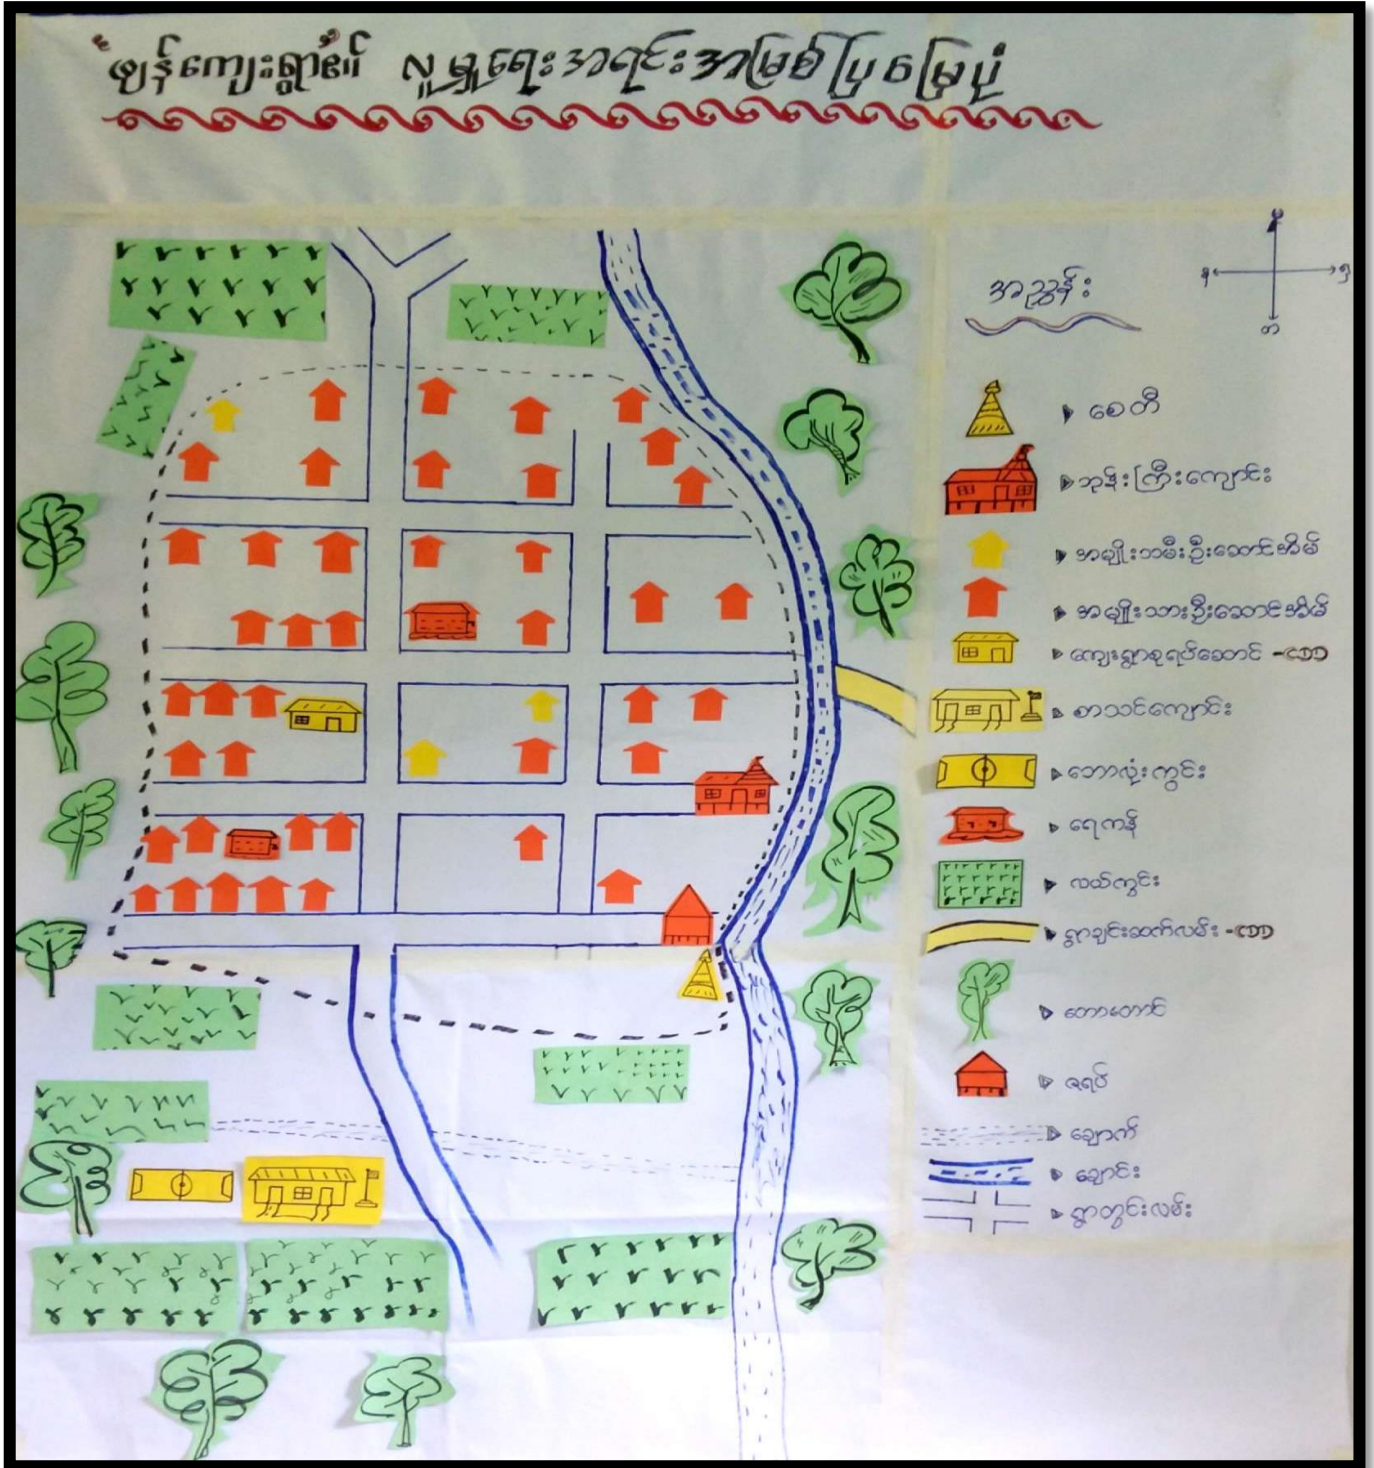 "ဖျန်ကျေးရွာ"၏ လူမှုရေးအရင်းအမြစ်ပြမြေပုံ
အညွှန်း
စေတီ
ဘုန်းကြီးကျောင်း
အမျိုးသမီးဦးဆောင်အိမ်
အမျိုးသားဦးဆောင်အိမ်
ကျေးရွာစုရပ်ဆောင်
စာသင်ကျောင်း
ဘောလုံးကွင်း
ရေကန်
လယ်ကွင်း
ရွာချင်းဆက်လမ်း
တောတောင်
ဇရပ်
ချောက်
ချောင်း
ရွာတွင်းလမ်း